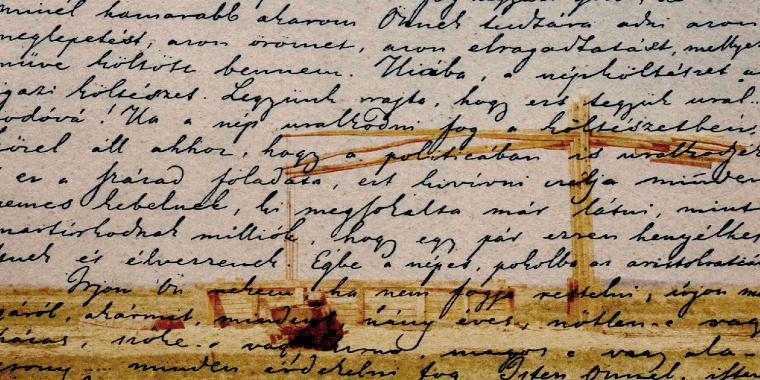 minél hamarabb akarom Önnek tudtára adni azon
meglepetést, azon örömet, azon elragadtatást, mellyet
műve költött bennem. Hiába, a népköltészet az
igazi költészet. Legyünk rajta, hogy ezt tegyük ural-
kodóvá! Ha a nép uralkodni fog a költészetben,
közel áll ahhoz, hogy a politicában is uralkodjék
s ez a század föladata, ezt kivívni czélja minden
nemes kebelnek, ki megsokalta már látni, mint
martirkodnak milliók, hogy egy pár ezren henyélhes
senek és élvezzenek. Égbe a népet, pokolba az aristokratiát
Irjon ön nekem, ha nem fogja restelni; irjon ma
gáról, akármit, mindent, hány éves, nőtlen-e vagy
házas, szőke-e vagy barna, magas-e vagy ala-
csony .... minden érdekelni fog. Isten Önnel, isten